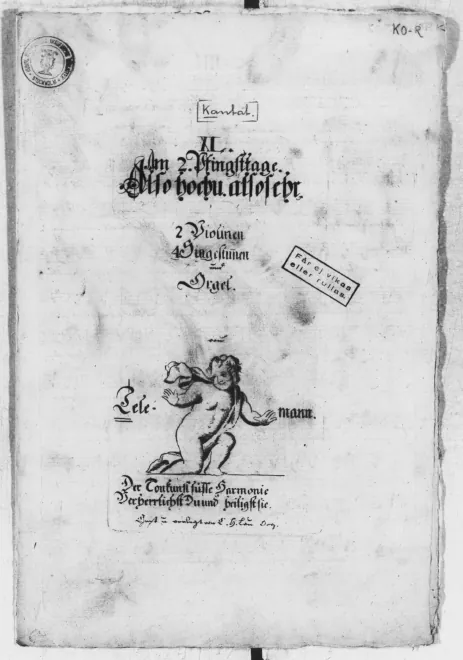 KO-R
[Kantat.]
XL.
Am 2. Pfingsttage.
Also hoch u. also sehr
2 Violinen
4 Singestimen
und
Orgel.
von
Tele- mann.
Får ej vikas
eller rullas.
Der Tonkunst süsse Harmonie
Verherrlichst Du und heiligst sie.